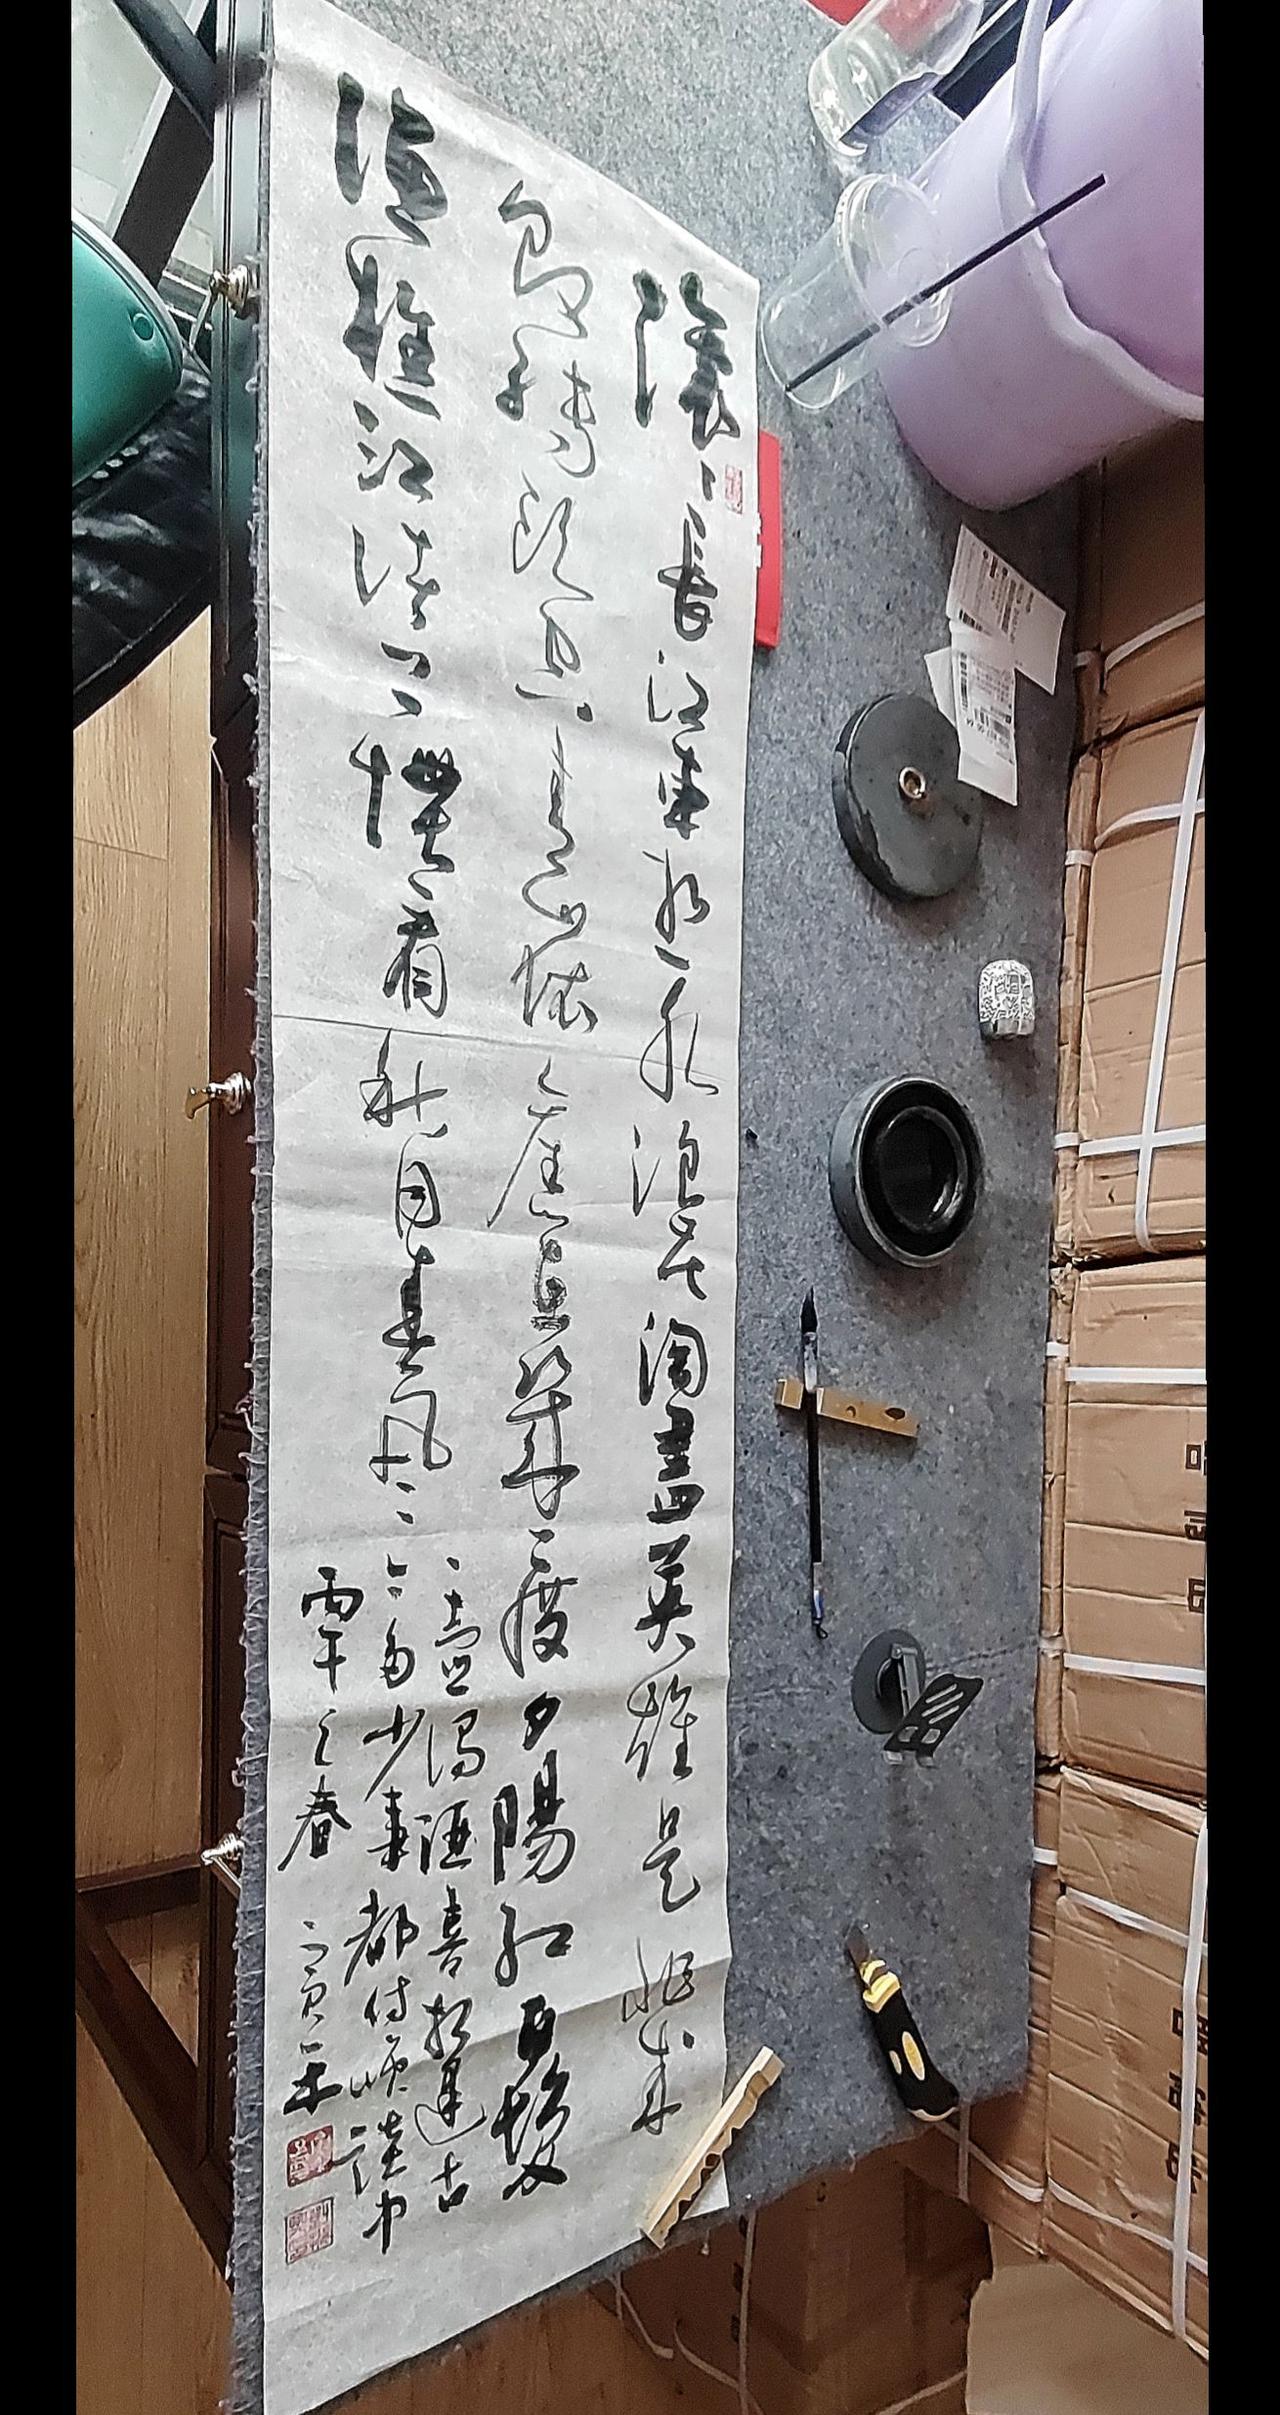 滚々長江東逝水浪花淘盡英雄是非成
敗轉頭空青山依舊在幾度夕陽紅白髮
漁樵江渚上慣看秋月春風
一壺濁酒喜相逢古
今多少事都付笑談中
丙午之春